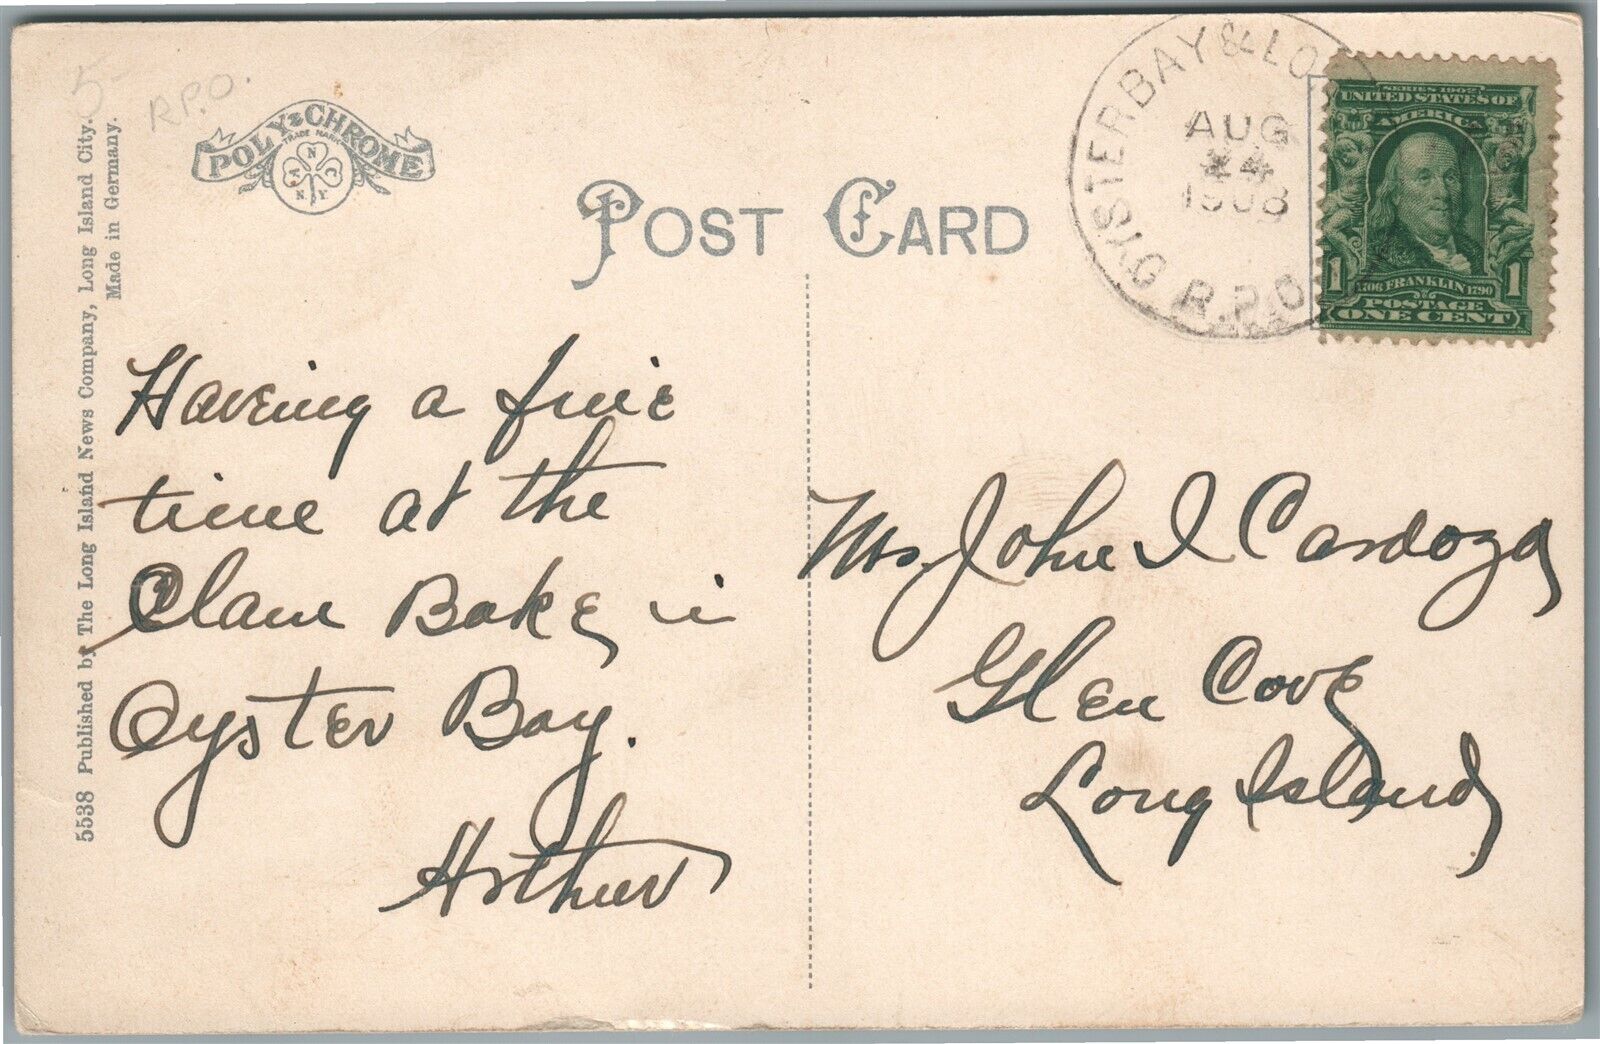 5-
R.P.O.
POLY-CHROME
TRADE MARK
A N C
N.Y.
POST CARD
OYSTERBAY & LO
AUG
24
1908
R.P.O.
SERIES 1902
UNITED STATES OF
AMERICA
1706 FRANKLIN 1790
1 POSTAGE 1
ONE CENT
5538 Published by The Long Island News Company, Long Island City.
Made in Germany.
Having a fine
time at the
Clam Bake in
Oyster Bay.
Arthur
John I Cardoza
Glen Cove
Long Island